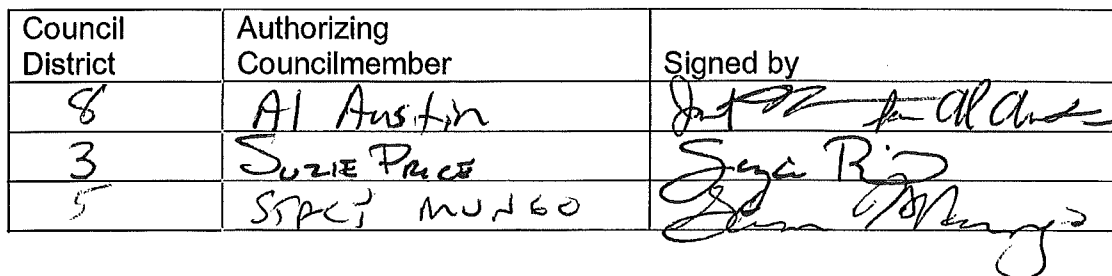 Council District Authorizing Councilmember Signed by
8 Al Austin for Al Austin
3 SUZIE PRICE Suzie Price
5 STACY MUNGO